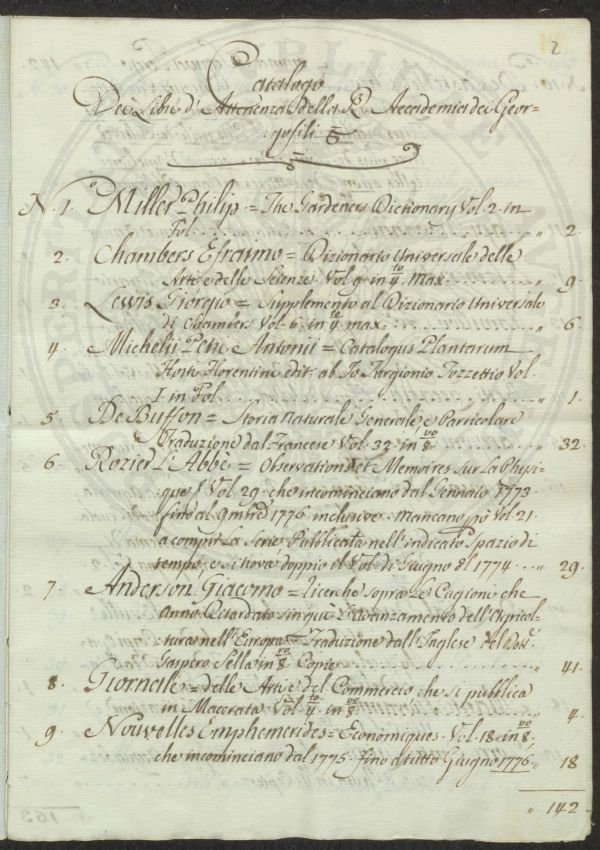 2
Catalogo
Dei Libri d'Attenenza della R. Accademia dei Geor-
:gofili
N. 1. Miller Philip = The Gardeners Dictionary Vol. 2. in
Fol. „ 2.
2. Chambers Efraimo = Dizionario Universale delle
Arti e delle Scienze Vol. 9. in 4.to max. „ 9.
3. Lewis Giorgio = Supplemento al Dizionario Universale
di Chambers Vol. 6. in 4.to max. „ 6
4. Michelii Petri Antonii = Catalogus Plantarum
Horti Florentini edit: ab Jo Targionio Tozzettio Vol.
I in Fol. „ 1.
5. De Buffon = Storia Naturale Generale e Particolare
Traduzione dal Francese Vol. 32. in 8.vo „ 32.
6. Rozier L'Abbè = Observations et Memoires sur La Phisi-
:que Vol. 29. che incominciano dal Gennaio 1773.
fino al 9mbre 1776. inclusive. mancano però Vol. 21.
a compir la serie Pubblicata nell'indicato spazio di
tempo, e si trova doppio il Vol. di Giugno del 1774. „ 29.
7 Anderson Giacomo = ricerche sopra Le Cagioni che
anno Ritardato sin quì L'avanzamento dell'Agricol-
:tura nell'Europa = Traduzione dall'Inglese del Dott.
Gaspero Sella in 8.vo Copie „ 41.
8. Giornale = delle Arti e del Commercio che si pubblica
in Macerata Vol. 4 in 8.vo „ 4.
9. Nouvelles Emphemerides = Economiques Vol. 18. in 8.vo
che incominciano dal 1775. fino a tutto Giugno 1776. „ 18
„ 142